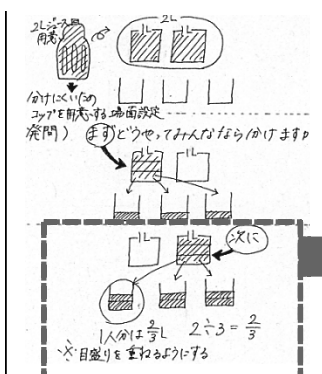 2Lジュース
用意
2L
1L 1L
分けにくいため
コップを用意する場面設定
発問) まずどうやってみんななら分けますか
1L 1L
1L 1L 次に
1人分は2/3L 2÷3=2/3
※目盛りを重ねるようにする